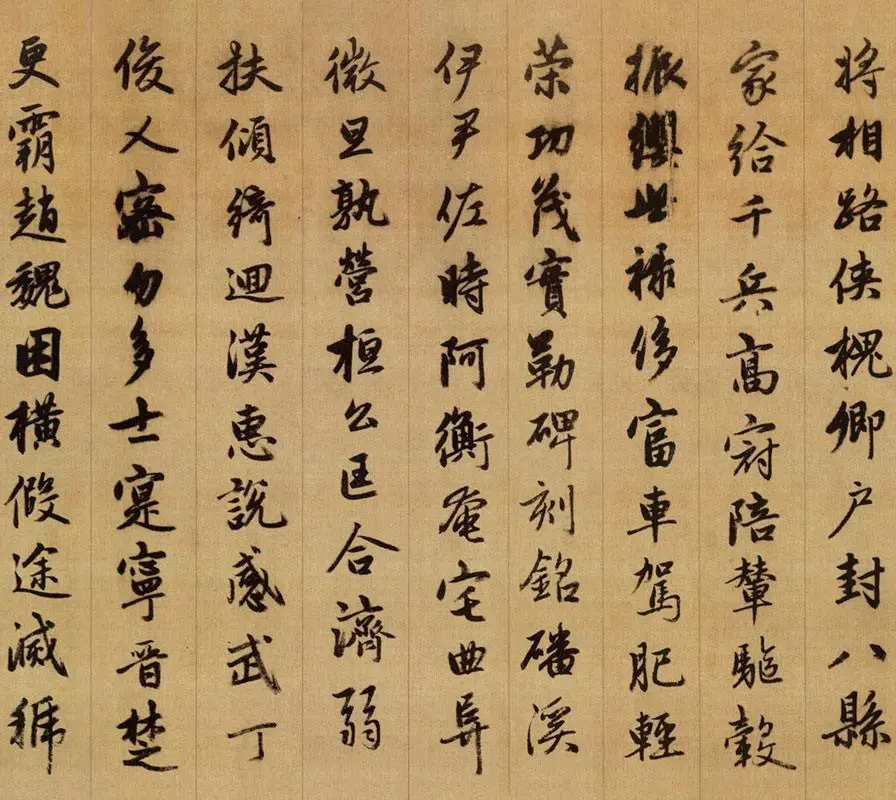 將相路俠槐卿户封八縣
家給千兵高冠陪輦驅轂
振纓世禄侈富車駕肥輕
荣功茂實勒碑刻銘磻溪
伊尹佐時阿衡奄宅曲阜
微旦孰營桓公匡合濟弱
扶傾綺迴漢惠說感武丁
俊乂密勿多士寔寧晋楚
更霸趙魏困橫假途滅虢